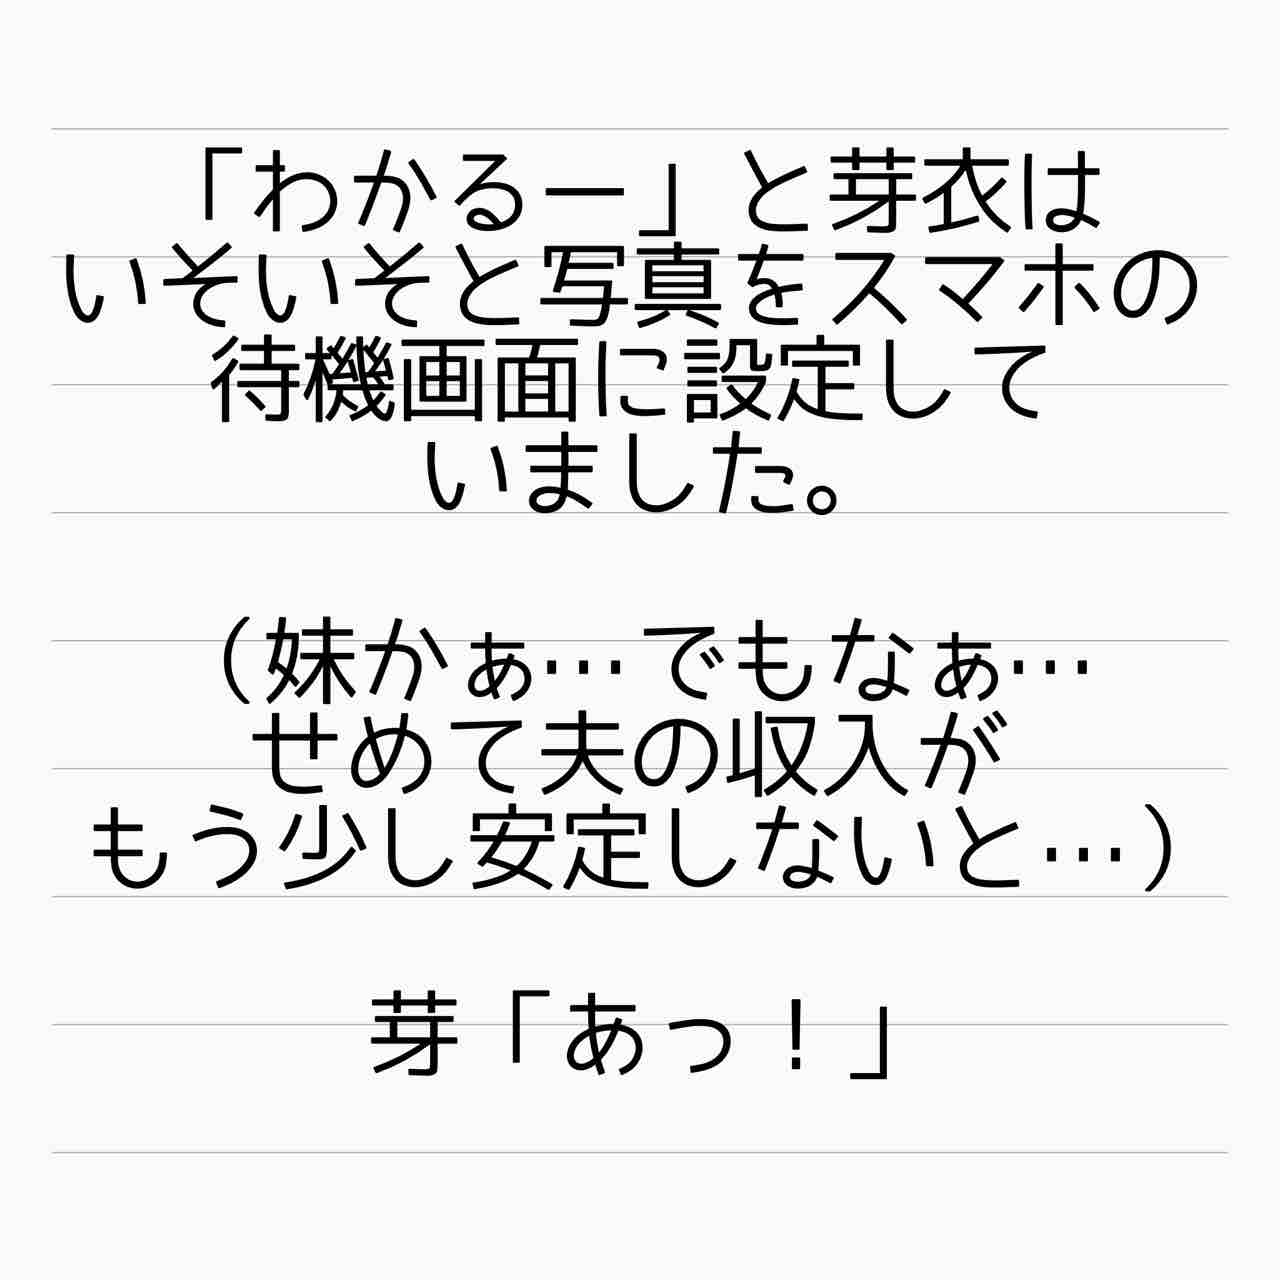 「わかるー」と芽衣は
いそいそと写真をスマホの
待機画面に設定して
いました。
（妹かぁ…でもなぁ…
せめて夫の収入が
もう少し安定しないと…）
芽「あっ！」